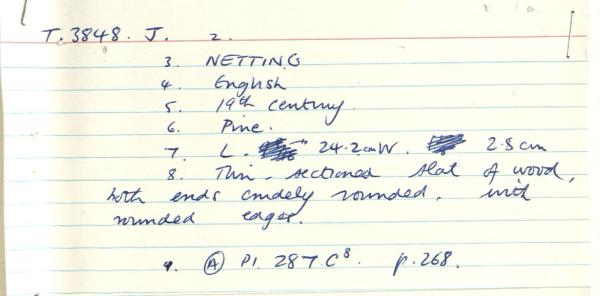 T. 3848. J. 2.
3. NETTING
4. English
5. 19th century.
6. Pine.
7. L. 24.2cm W. 2.8cm
8. Thin-sectioned slat of wood,
both ends crudely rounded. with
rounded edges.
9. (A) Pl. 287.C8. p.268.